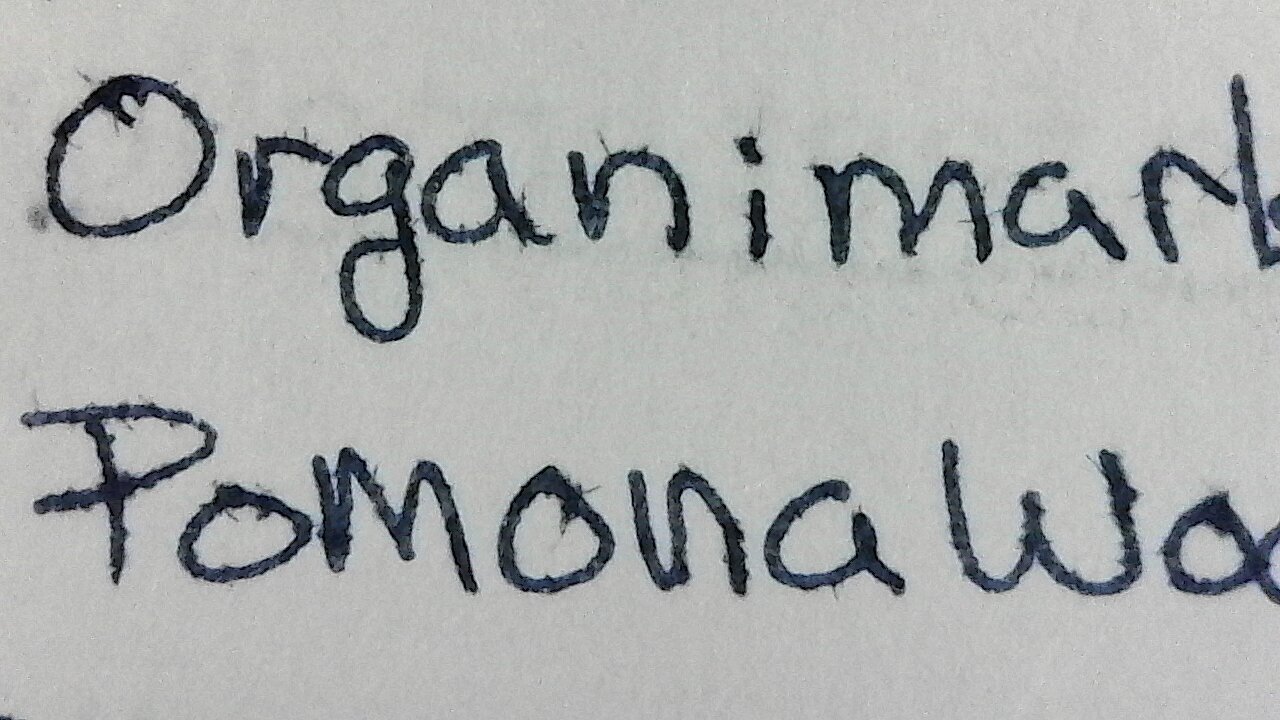 Organimark
Pomona Wo